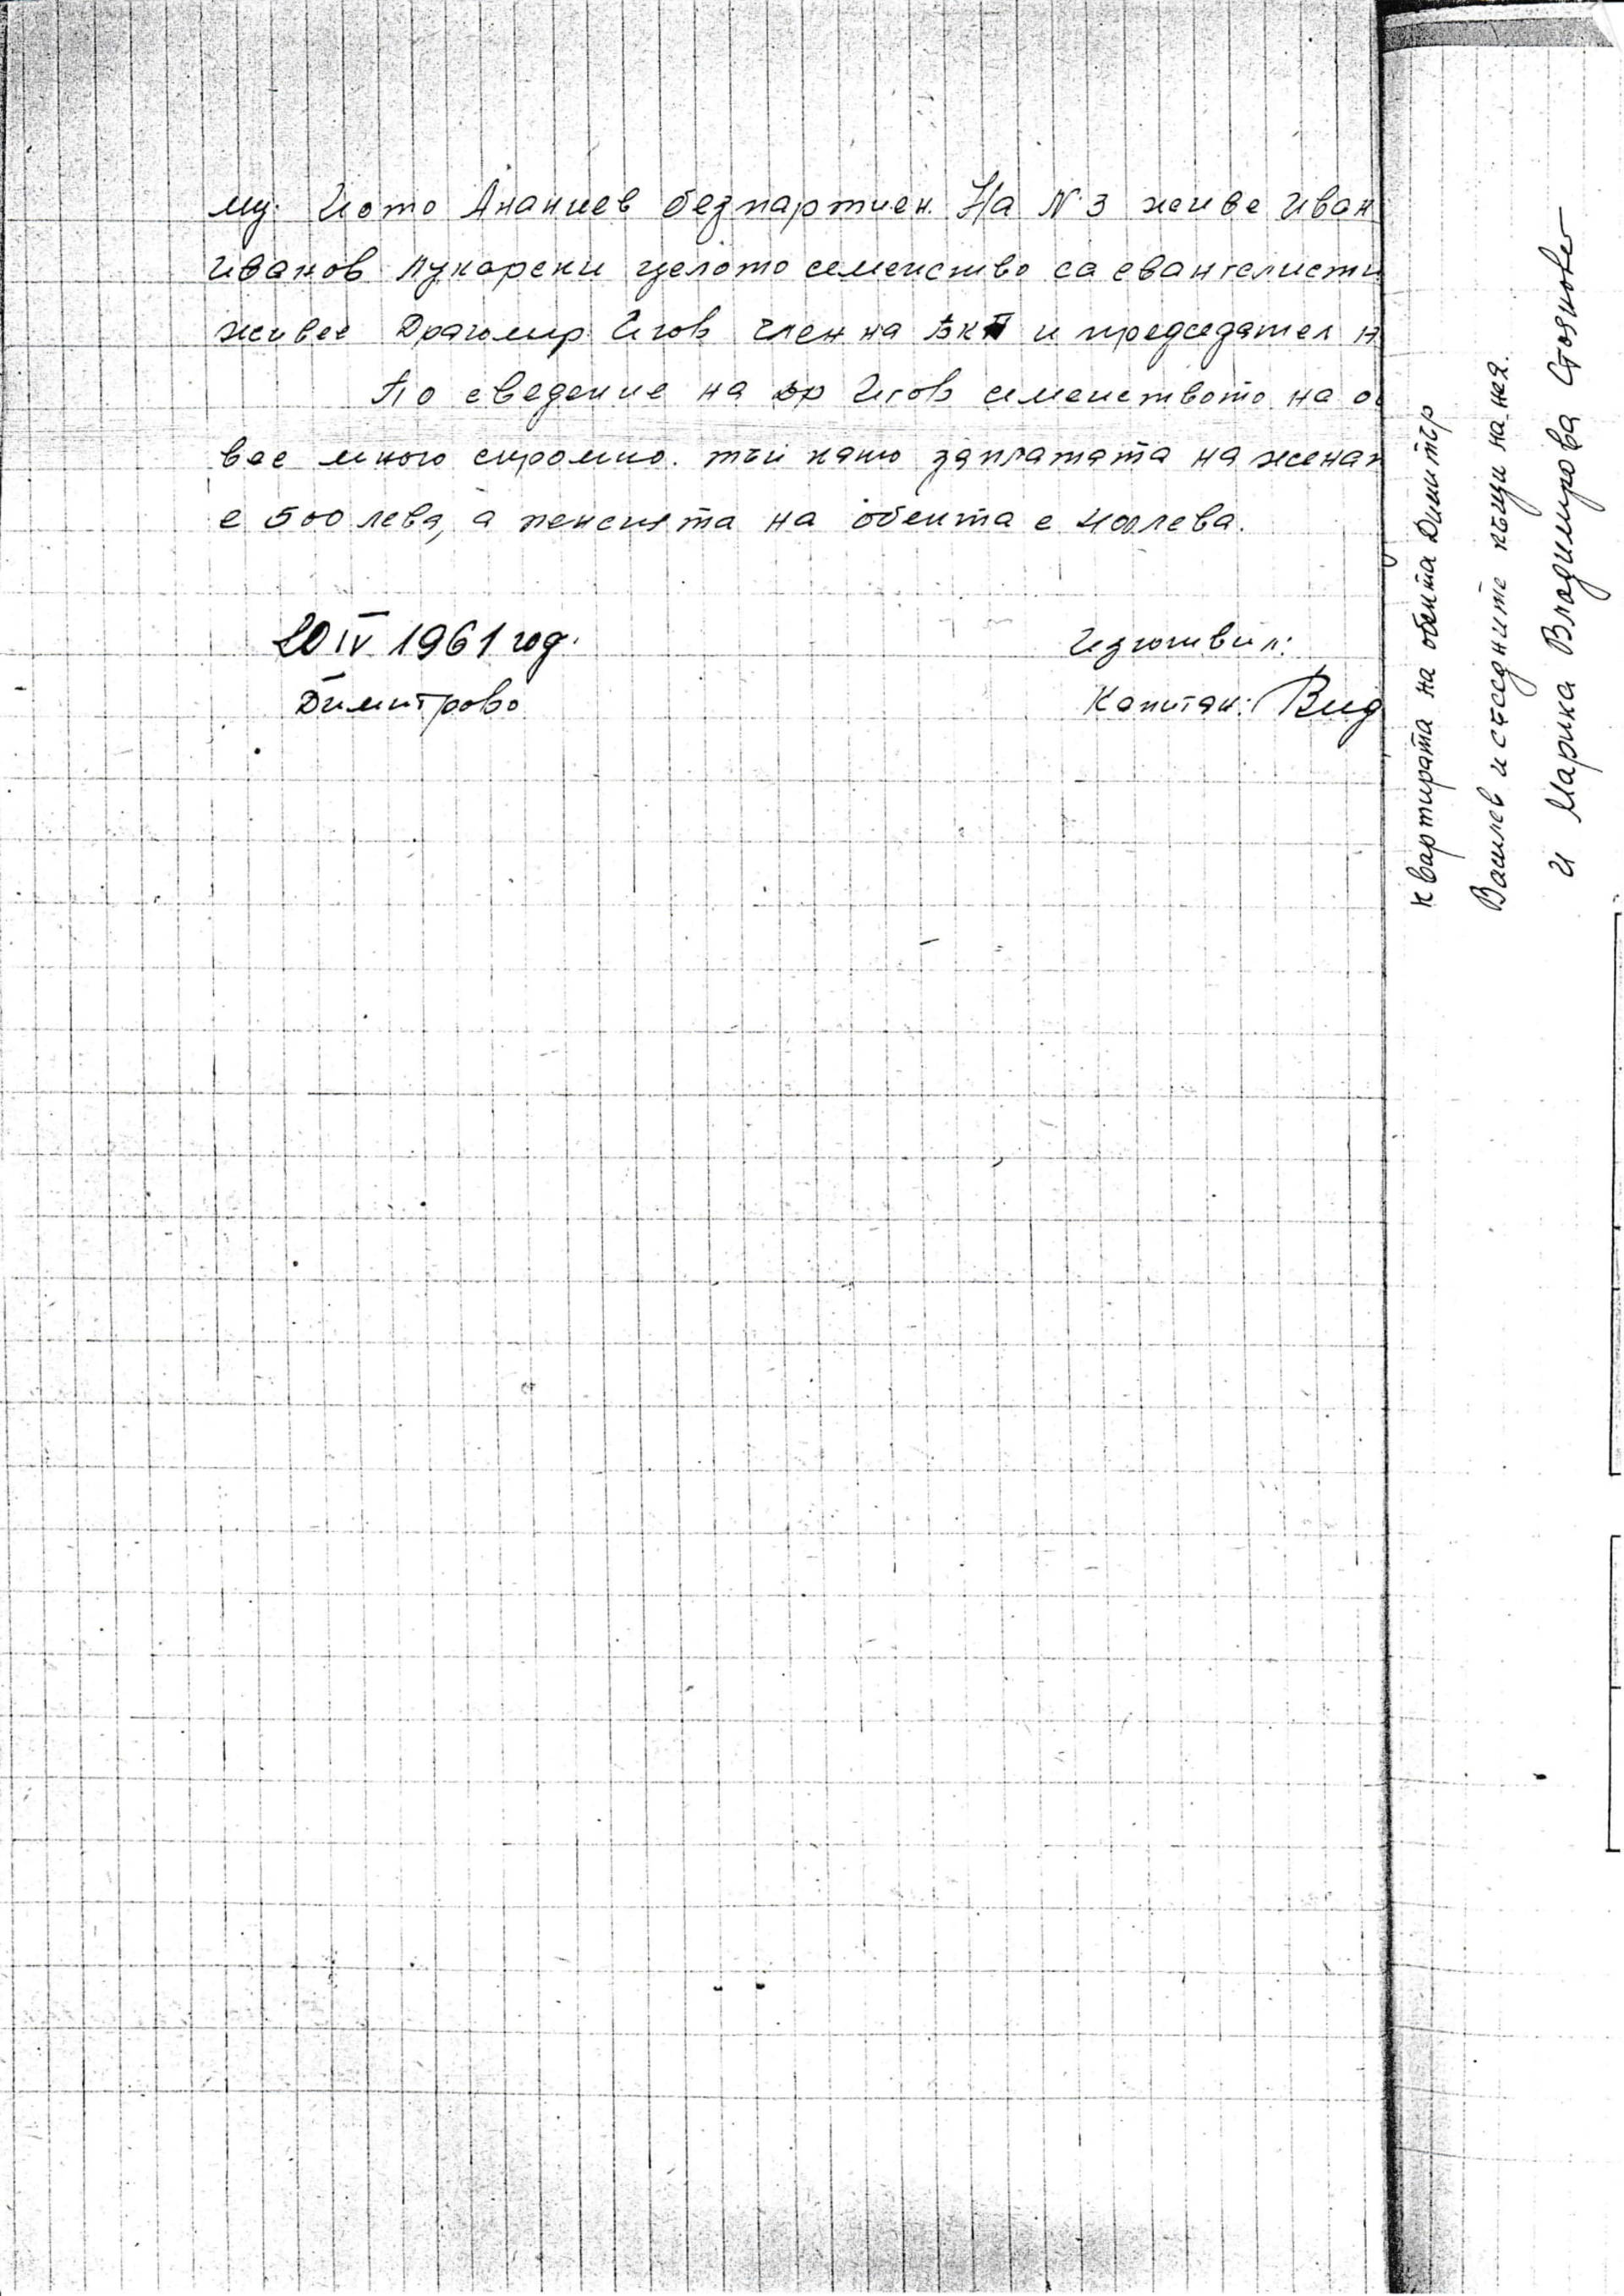 му. Иото Ананиев безпартиен. На N.3 живе Иван
Иванов Лукарски целото семеиство са евангелисти
живее Драгомир Игов член на БКП и председател н
По сведение на др Игов семеиството на о
вее много скромно. тъи като заплатата на женат
е 500 лева, а пенсията на обекта е 400 лева.
20 IV 1961 год.
Изготвил:
Димитрово
Капитан: Вид
квартирата на обекта Димитър
Вашлев и съседните къщи на нея.
и Марика Владимирова Стоянова